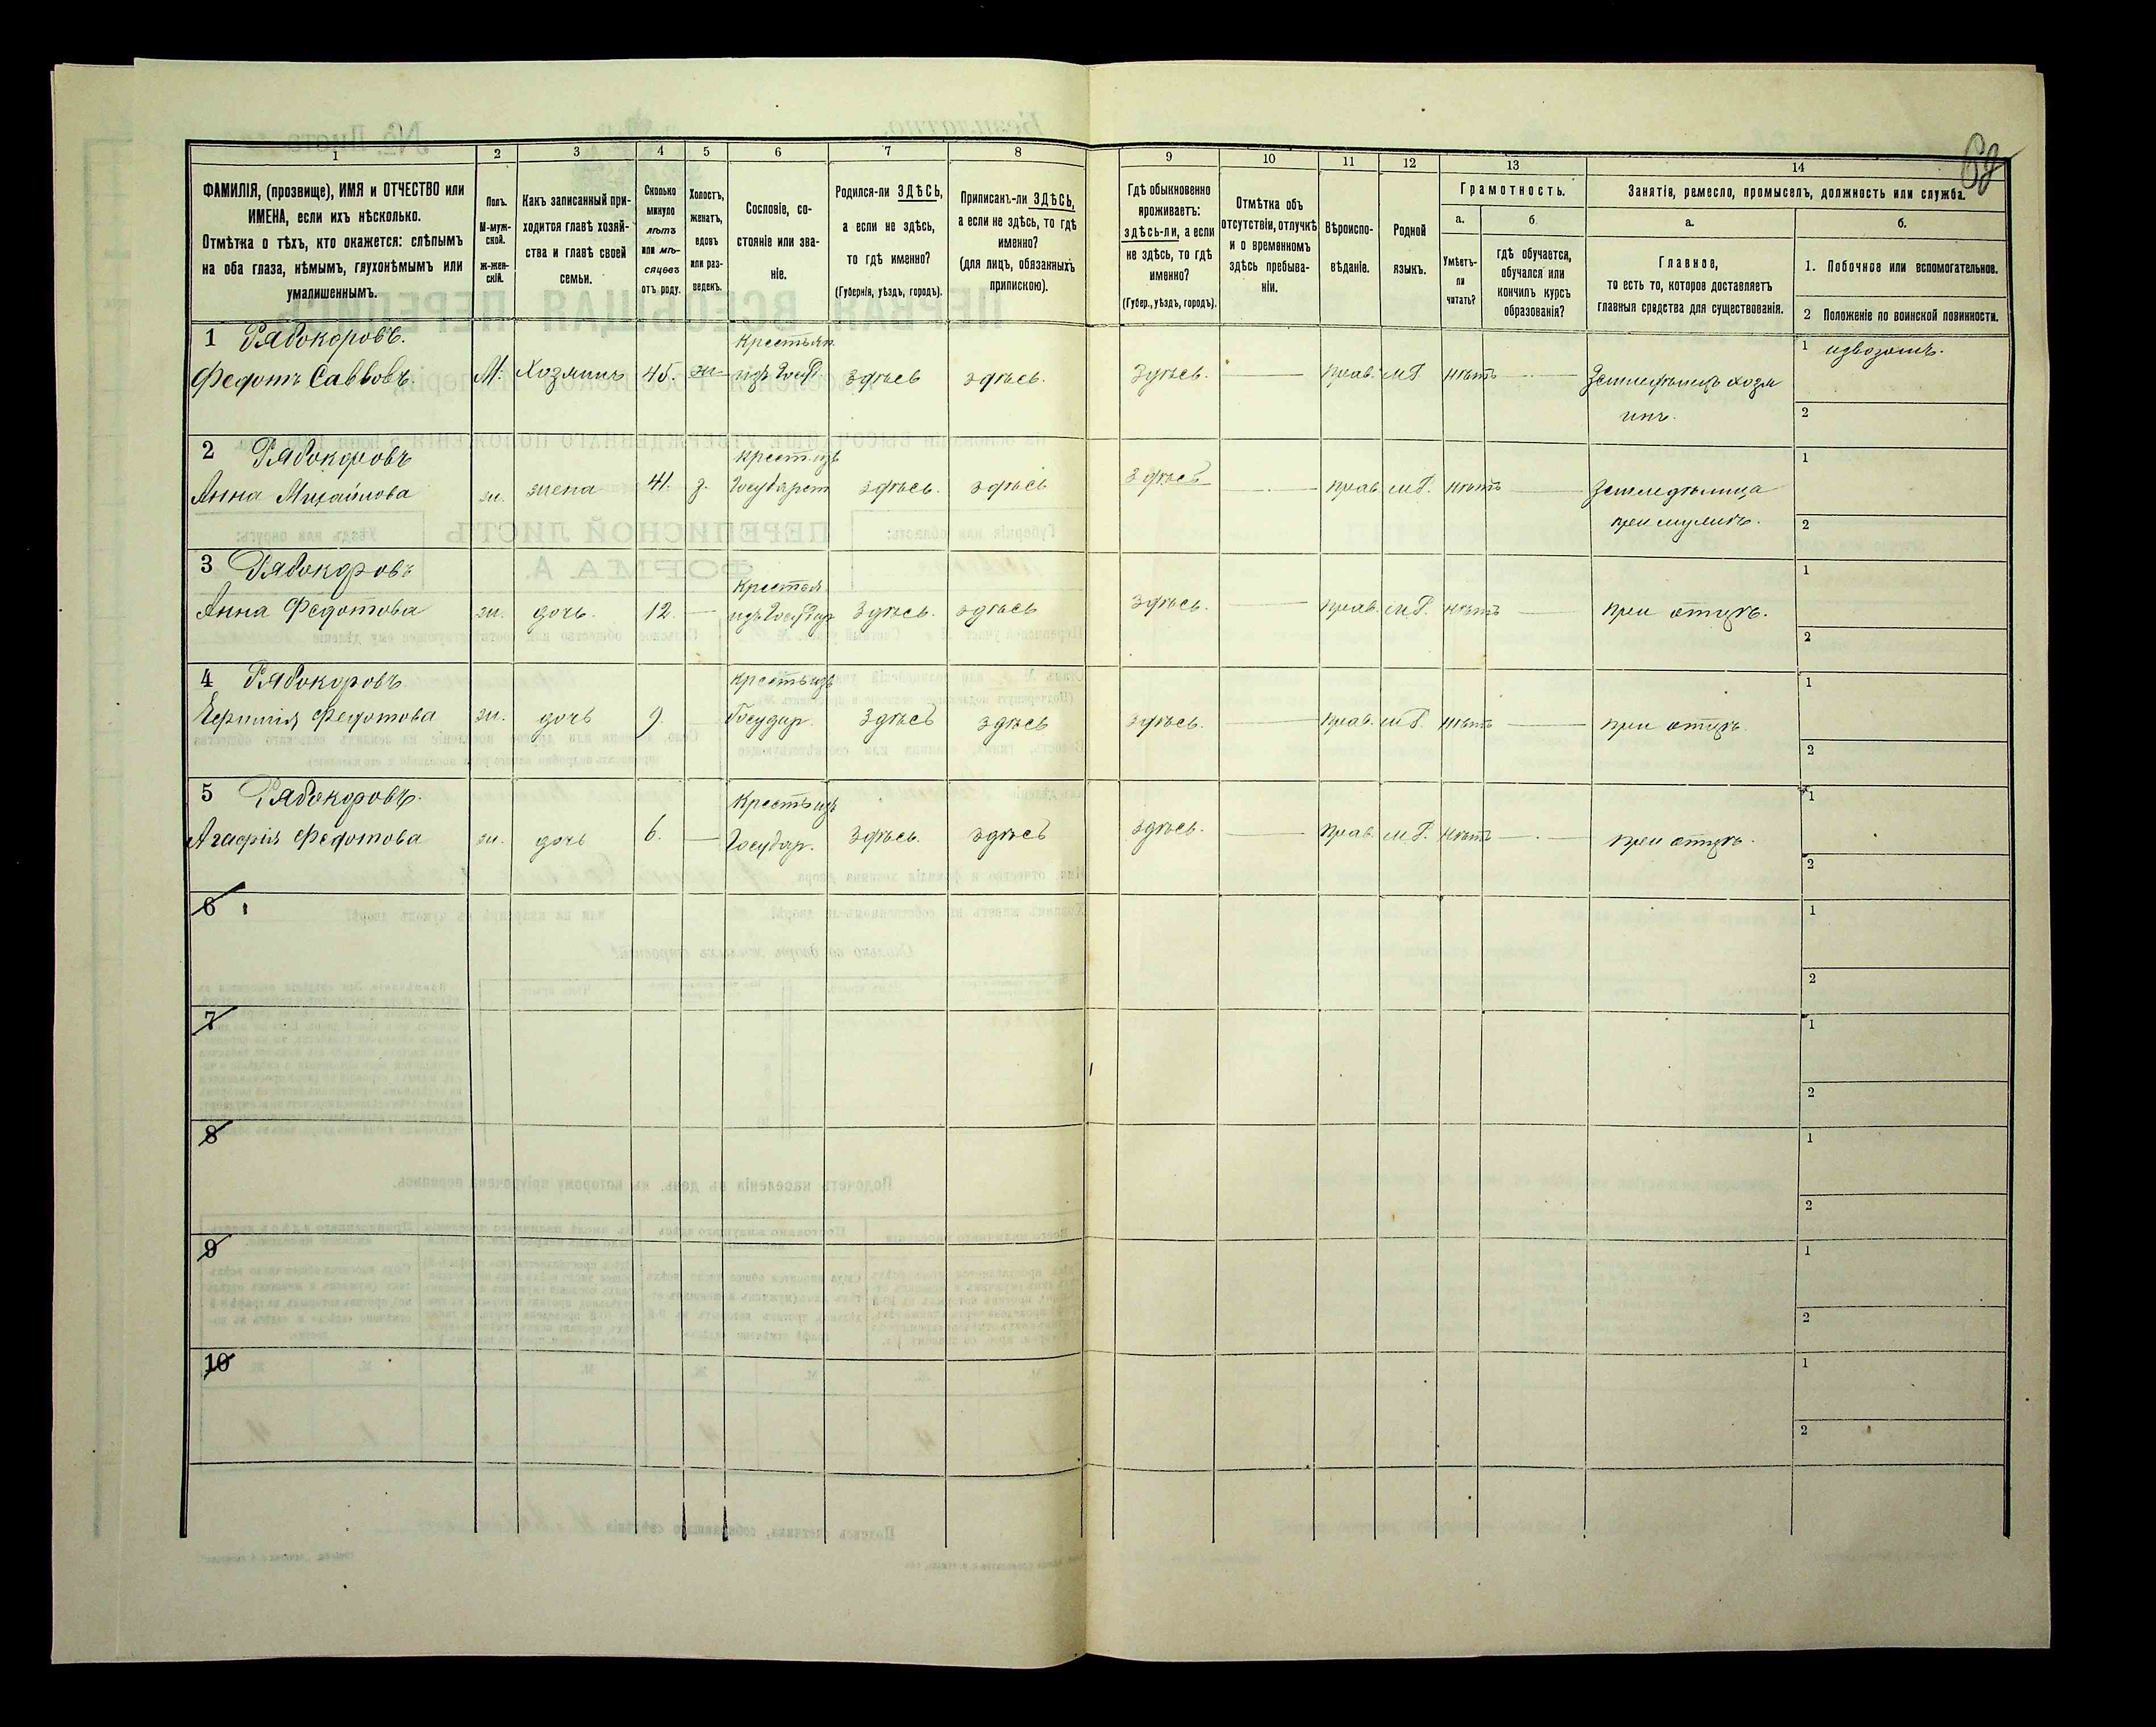 68
1 2 3 4 5 6 7 8 9 10 11 12 13 14
ФАМИЛІЯ, (прозвище), ИМЯ и ОТЧЕСТВО или
ИМЕНА, если ихъ нѣсколько.
Отмѣтка о тѣхъ, кто окажется: слѣпымъ
на оба глаза, нѣмымъ, глухонѣмымъ или
умалишеннымъ.
Полъ.
М-муж-
ской.
ж-жен-
скій.
Какъ записанный при-
ходится главѣ хозяй-
ства и главѣ своей
семьи.
Сколько
минуло
лѣтъ
или мѣ-
сяцевъ
отъ роду.
Холостъ,
женатъ,
вдовъ
или раз-
веденъ.
Сословіе, со-
стояніе или зва-
ніе.
Родился-ли ЗДѢСЬ,
а если не здѣсь,
то гдѣ именно?
(Губернія, уѣздъ, городъ).
Приписанъ-ли ЗДѢСЬ,
а если не здѣсь, то гдѣ
именно?
(для лицъ, обязанныхъ
припискою).
Гдѣ обыкновенно
проживаетъ:
здѣсь-ли, а если
не здѣсь, то гдѣ
именно?
(Губер., уѣздъ, городъ).
Отмѣтка объ
отсутствіи, отлучкѣ
и о временномъ
здѣсь пребыва-
ніи.
Вѣроиспо-
вѣданіе.
Родной
языкъ.
Грамотность.
а.
Умѣетъ-
ли
читать?
б.
гдѣ обучается,
обучался или
кончилъ курсъ
образованія?
Занятія, ремесло, промыселъ, должность или служба.
а.
Главное,
то есть то, которое доставляетъ
главныя средства для существованія.
б.
1. Побочное или вспомогательное.
2 Положеніе по воинской повинности.
1 Рябокоровъ. Крестьян. 1 извозомъ.
Федотъ Савловъ. М. Хозяинъ 45. здѣсь здѣсь. Здѣсь. Прав. нѣтъ Земледѣлецъ хозя
инъ. 2
2 Рябокоровъ Крест. изъ 1
Анна Михайлова ж. жена 41. з. Государст здѣсь. здѣсь здѣсь прав. нѣтъ Земледѣлица
при мужѣ. 2
3 Рябокоровъ Крестья 1
Анна Федотова ж. дочь. 12. Здѣсь. здѣсь здѣсь. прав. нѣтъ при отцѣ.
2
4 Рябокоровъ Крестьизъ 1
Федотова ж. дочь 9. Государ. Здѣсь здѣсь здѣсь. прав. нѣтъ при отцѣ.
2
5 Рябокоровъ. Крестьизъ 1
Агафія Федотова ж. дочь 6. Государ. Здѣсь. здѣсь здѣсь. прав. нѣтъ при отцѣ.
2
6 1
2
7 1
2
8 1
2
9 1
2
10 1
2